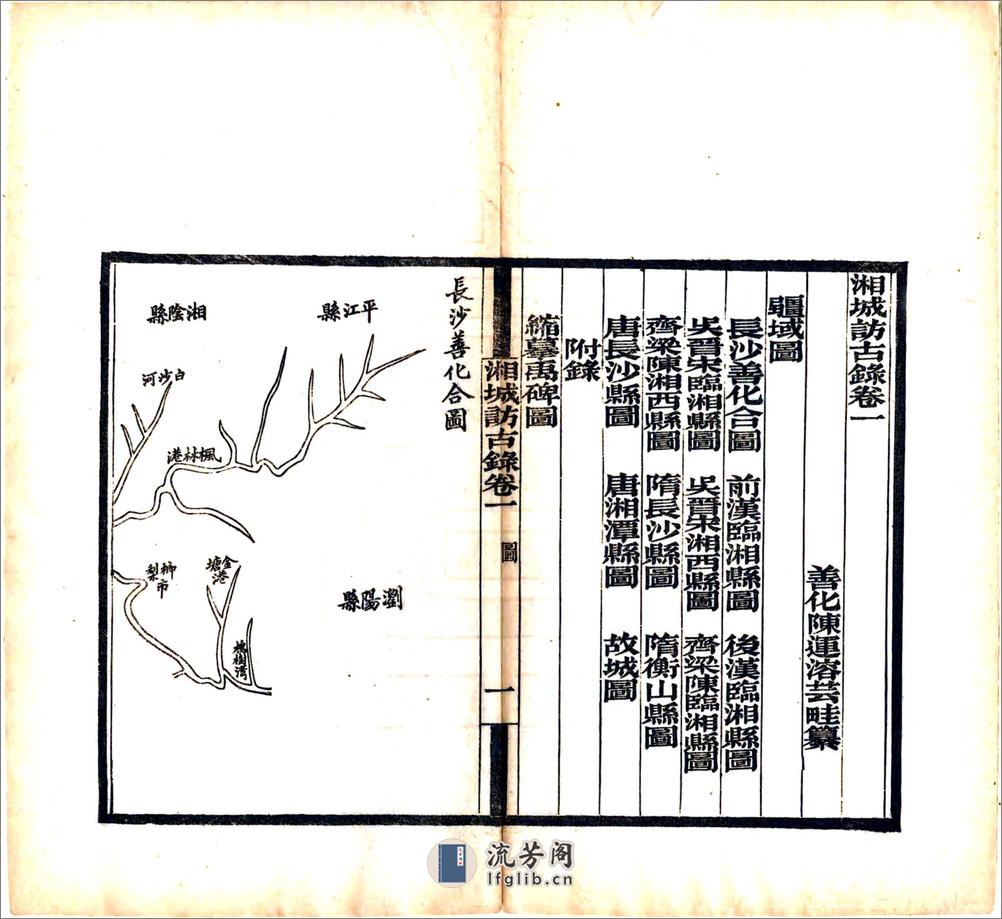 湘城訪古錄卷一
善化陳運溶芸畦纂
疆域圖
長沙善化合圖 前漢臨湘縣圖 後漢臨湘縣圖
吳晉宋臨湘縣圖 吳晉宋湘西縣圖 齊梁陳臨湘縣圖
齊梁陳湘西縣圖 隋長沙縣圖 隋衡山縣圖
唐長沙縣圖 唐湘潭縣圖 故城圖
附錄
縮摹禹碑圖
湘城訪古錄卷一 圖 一
長沙善化合圖
平江縣
湘陰縣
白沙河
楓林港
瀏陽縣
金塘港
㮾梨市
槐樹灣
流芳阁
lfglib.cn